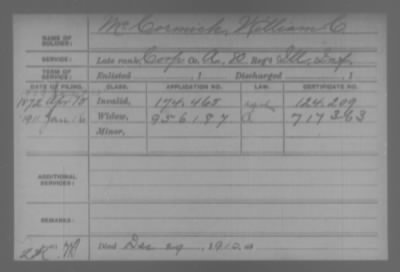 NAME OF SOLDIER: McCormick, William C
SERVICE: Late rank, Corp Co. A, Reg't Ill. Inf.
TERM OF SERVICE: Enlisted , 1 Discharged , 1
DATE OF FILING. CLASS. APPLICATION NO. LAW. CERTIFICATE NO.
1872 Apr Invalid, 174.465 124.209
1911 Jan 16 Widow, 956187 717363
Minor,
ADDITIONAL SERVICES:
REMARKS:
Died Dec 29, 1910